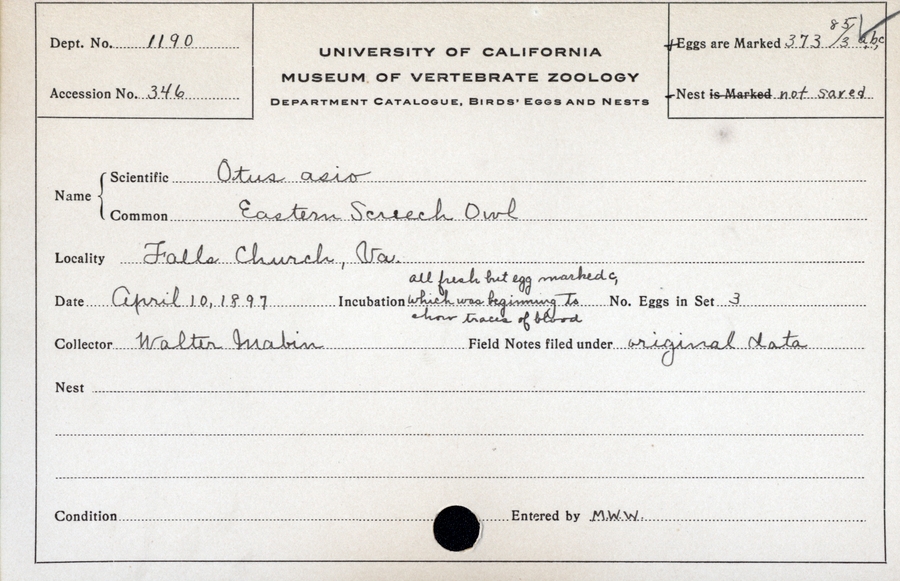 Dept. No. 1190
Accession No. 346
UNIVERSITY OF CALIFORNIA
MUSEUM OF VERTEBRATE ZOOLOGY
DEPARTMENT CATALOGUE, BIRDS' EGGS AND NESTS
Eggs are Marked 373 85/3 abc
Nest is Marked not saved
Name
Scientific Otus asio
Common Eastern Screech Owl
Locality Falls Church, Va.
Date April 10, 1897
Incubation all fresh but egg marked c,
which was beginning to
show traces of blood
No. Eggs in Set 3
Collector Walter Mabin
Field Notes filed under original data
Nest
Condition
Entered by M.W.W.